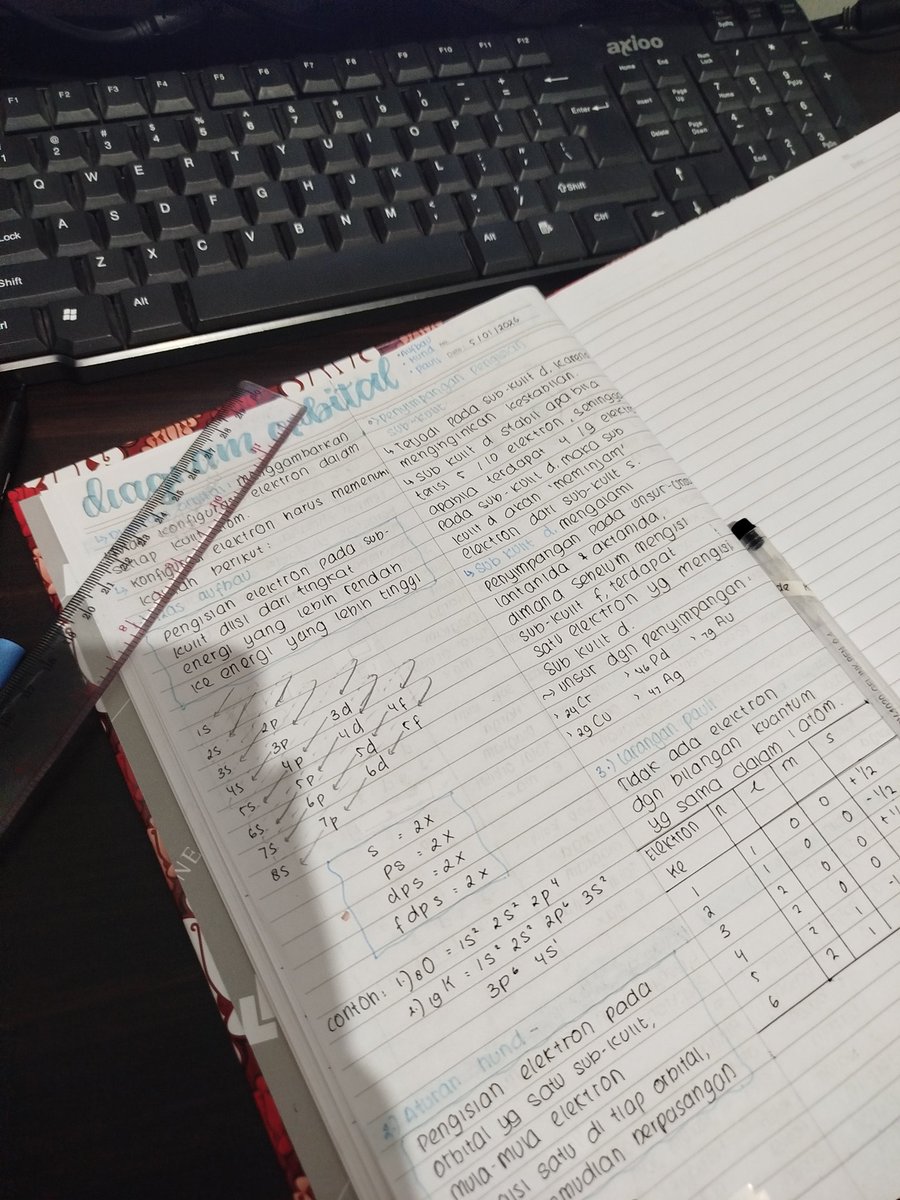 axioo
F1 F2 F3 F4 F5 F6 F7 F8 F9 F10 F11 F12
Q W E R T Y U I O P
A S D F G H J K L
Z X C V B N M
Lock
Shift
Alt
Alt
Ctrl
Enter
Shift
Home End
Insert Page Up
Delete Page Down
Num Lock
7 Home 8 9 PgUp
4 5 6
1 End 2 3
diagram orbital
• Aufbau
• Hund
• Pauli
No:
Date: 5/01/2026
menggambarkan
konfigurasi elektron dalam
setiap kulit atom.
konfigurasi elektron harus memenuhi
kaidah berikut:
aufbau
pengisian elektron pada sub-
kulit diisi dari tingkat
energi yang lebih rendah
ke energi yang lebih tinggi
1s
2s 2p
3s 3p 3d
4s 4p 4d 4f
5s 5p 5d 5f
6s 6p 6d
7s 7p
8s
s = 2x
ps = 2x
dps = 2x
fdps = 2x
contoh: 1.) 8O = 1s² 2s² 2p⁴
2.) 19K = 1s² 2s² 2p⁶ 3s²
3p⁶ 4s¹
2.) Aturan hund -
pengisian elektron pada
orbital yg satu sub-kulit,
mula-mula elektron
isi satu di tiap orbital,
kemudian berpasangan
•) penyimpangan pengisian
sub-kulit
↳ Terjadi pada sub-kulit d, karena
menginginkan kestabilan.
↳ sub kulit d stabil apabila
terisi 5 / 10 elektron, sehingga
apabila terdapat 4 / 9 elektron
pada sub-kulit d, maka sub
kulit d akan 'meminjam'
elektron dari sub-kulit s.
↳ sub kulit d, mengalami
penyimpangan pada unsur-unsur
lantanida & aktanida,
dimana sebelum mengisi
sub-kulit f, terdapat
satu elektron yg mengisi
sub kulit d.
~> unsur dgn penyimpangan:
› 24Cr › 46Pd › 79Au
› 29Cu › 47Ag
3.) larangan pauli
Tidak ada elektron
dgn bilangan kuantum
yg sama dalam 1 atom.
Elektron ke n l m s
1 1 0 0 +1/2
2 1 0 0 -1/2
3 2 0 0
4 2 0 0
5 2 1 -1
6 2 1